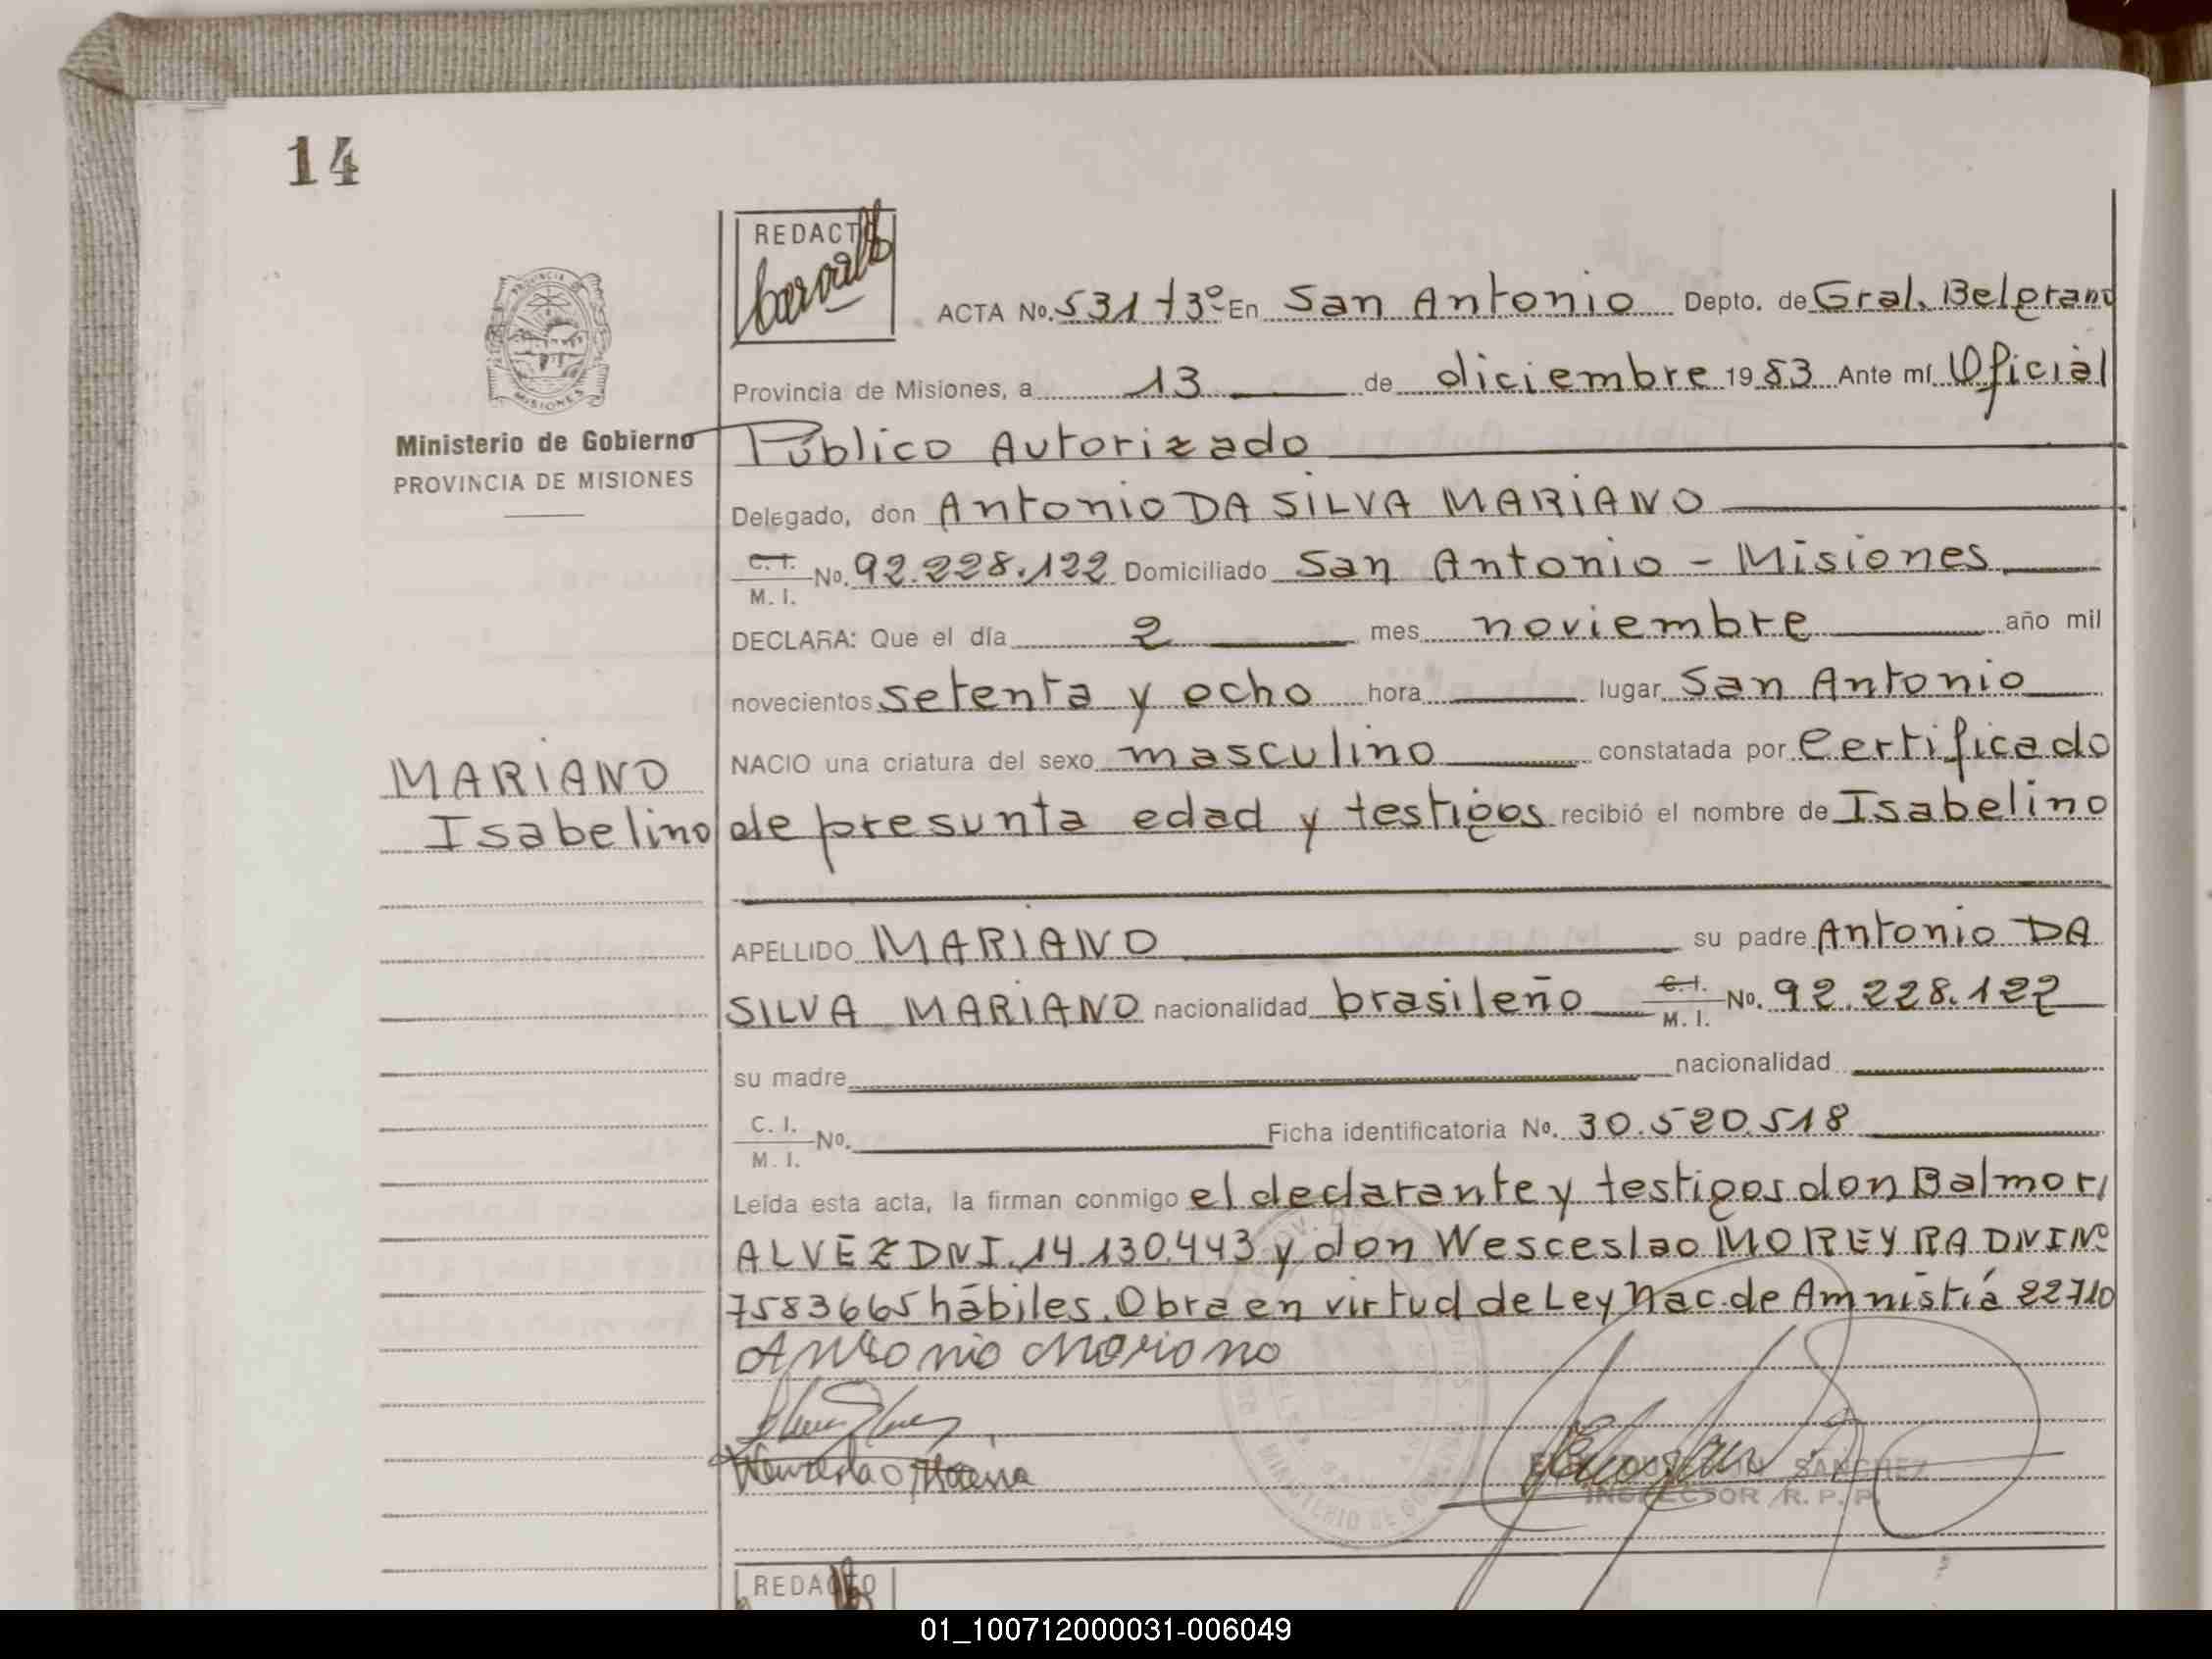 14
REDACTO
ACTA No. 531 T3º En San Antonio Depto. de Gral. Belgrano
Provincia de Misiones, a 13 de diciembre 1983 Ante mí Oficial
Ministerio de Gobierno
PROVINCIA DE MISIONES
Público Autorizado
Delegado, don Antonio DA SILVA MARIANO
C.I. M. I. No. 92.228.122 Domiciliado San Antonio - Misiones
DECLARA: Que el día 2 mes noviembre año mil
novecientos setenta y ocho hora lugar San Antonio
NACIO una criatura del sexo masculino constatada por Certificado
MARIANO
Isabelino
de presunta edad y testigos recibió el nombre de Isabelino
APELLIDO MARIANO su padre Antonio DA
SILVA MARIANO nacionalidad brasileño C.I. M. I. No. 92.228.122
su madre nacionalidad
C. I. M. I. No. Ficha identificatoria No. 30.520.518
Leída esta acta, la firman conmigo el declarante y testigos don Balmori
ALVEZ DNI. 14.130.443 y don Wesceslao MOREYRA DNI Nº
7583665 hábiles. Obra en virtud de Ley Nac. de Amnistiá 22710
Antonio Mariano
SANCHEZ
INSPECTOR R. P. P.
REDACTO
01_100712000031-006049